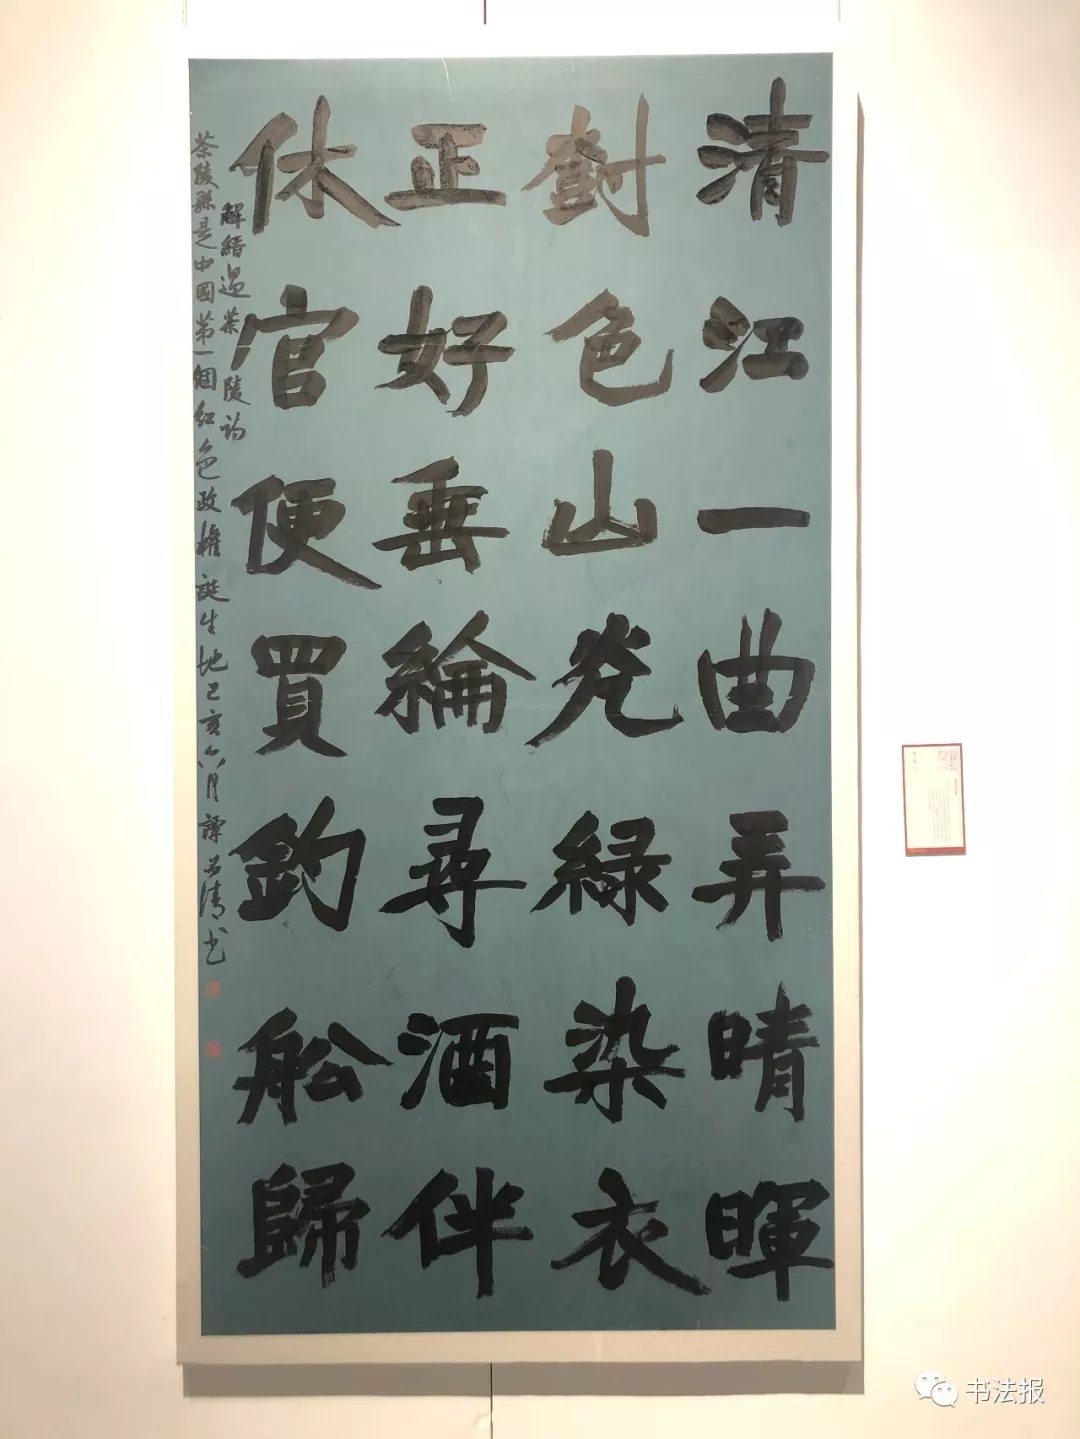 清江一曲弄晴暉
對色山光綠染衣
正好垂綸尋酒伴
休官便買釣船歸
解縉過茶陵詩
茶陵縣是中國第一個紅色政權誕生地己亥六月譚清书
书法报